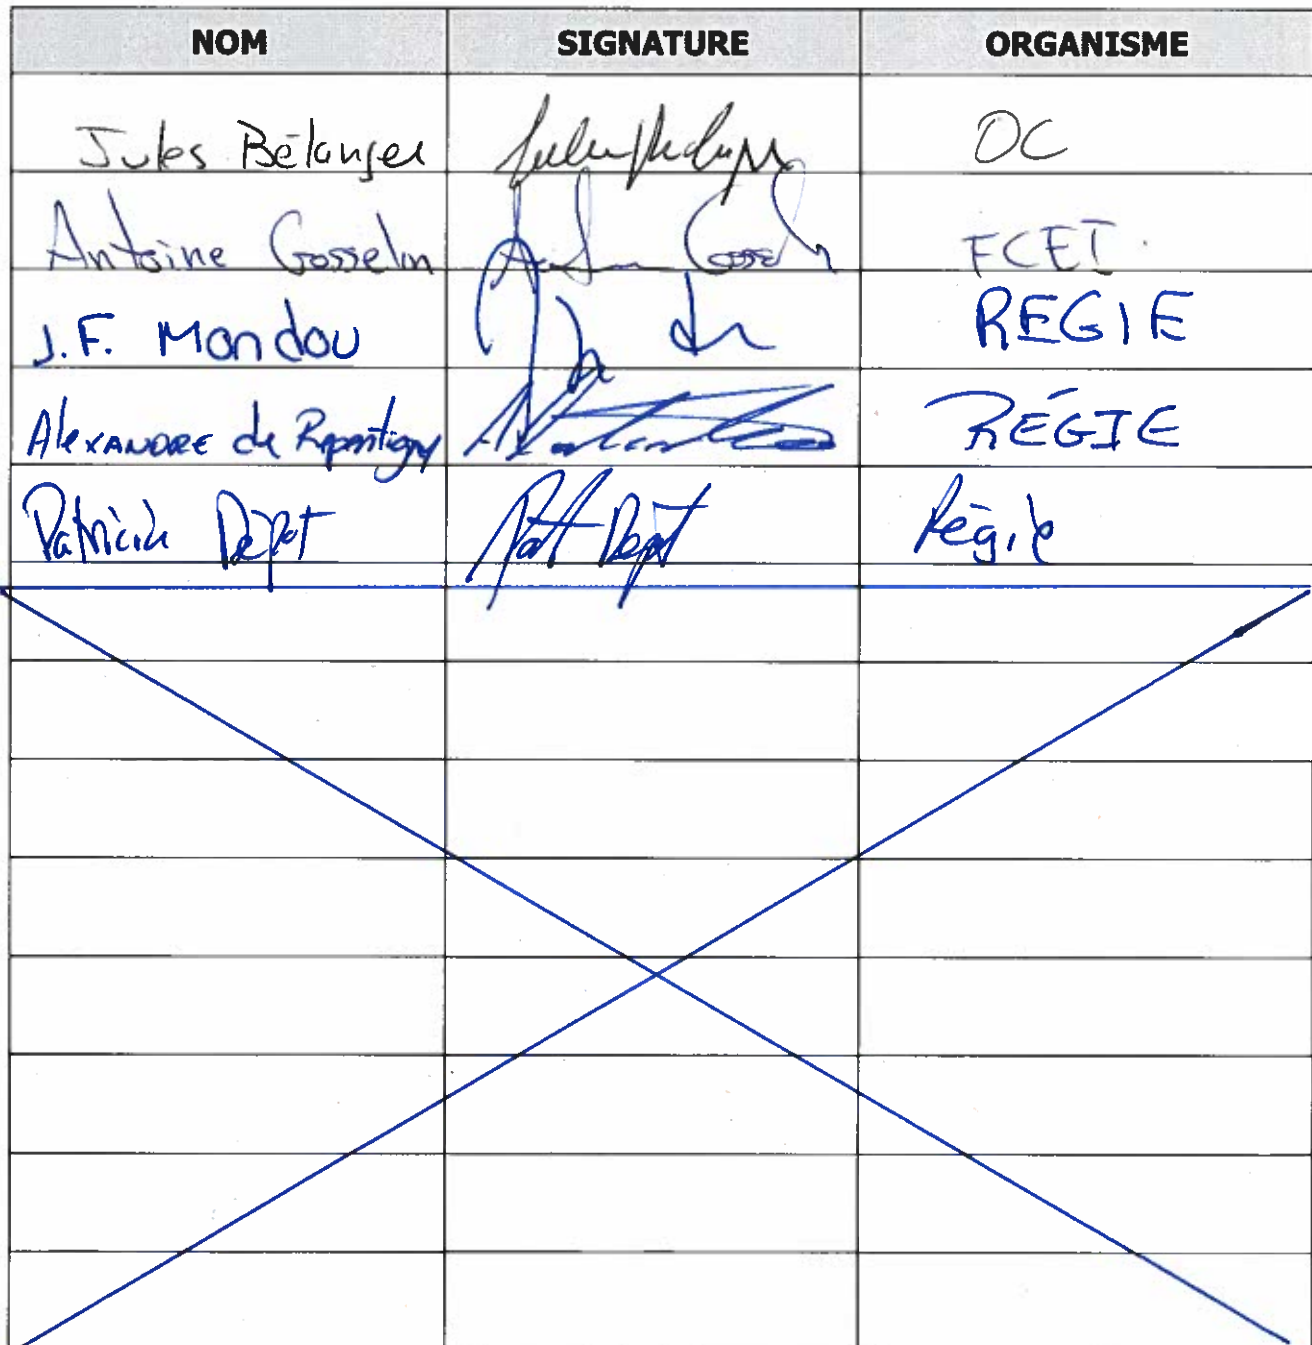 NOM SIGNATURE ORGANISME
Jules Bélanger OC
Antoine Gosselin FCEI
J.F. Mondou REGIE
ALEXANDRE de Repentigny RÉGIE
Patricia Dépot Pat Depot Régie